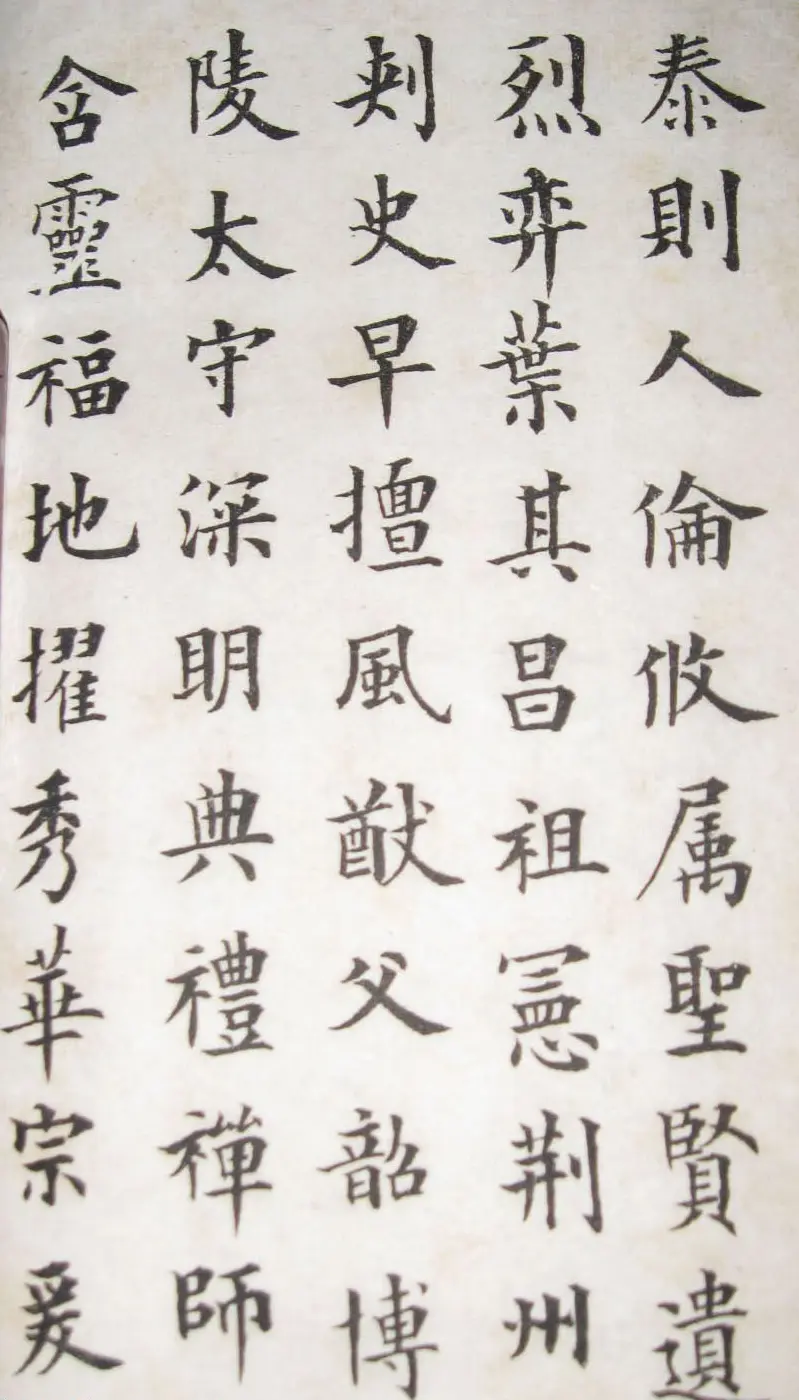 泰則人倫攸属聖賢遺
烈弈葉其昌祖憲荆州
刾史早擅風猷父韶博
陵太守深明典禮禪師
含靈福地擢秀華宗爰